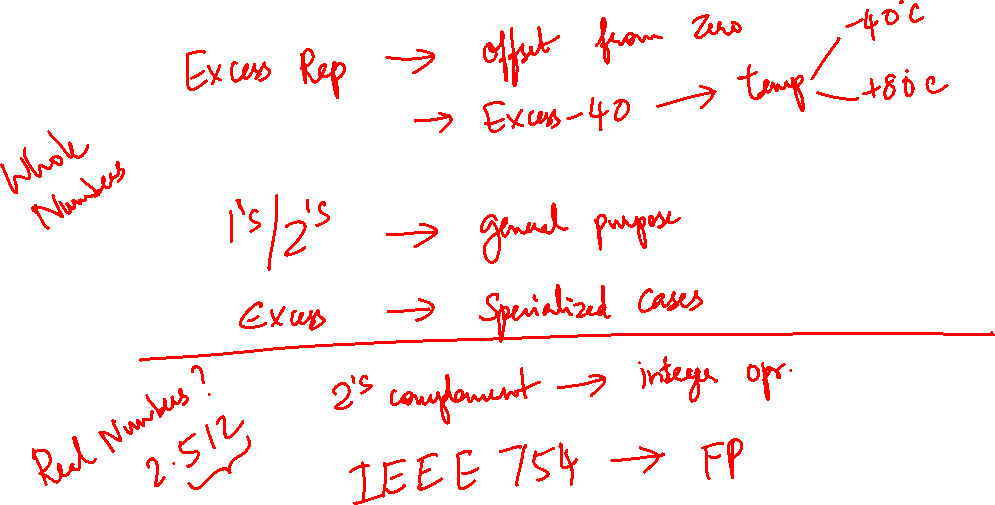 Excess Rep → offset from zero
→ Excess-40 → temp -40°C
+80°C
Whole
Numbers
1's/2's → general purpose
Excess → Specialized cases
2's complement → integer opr.
Real Numbers?
2.512
IEEE 754 → FP